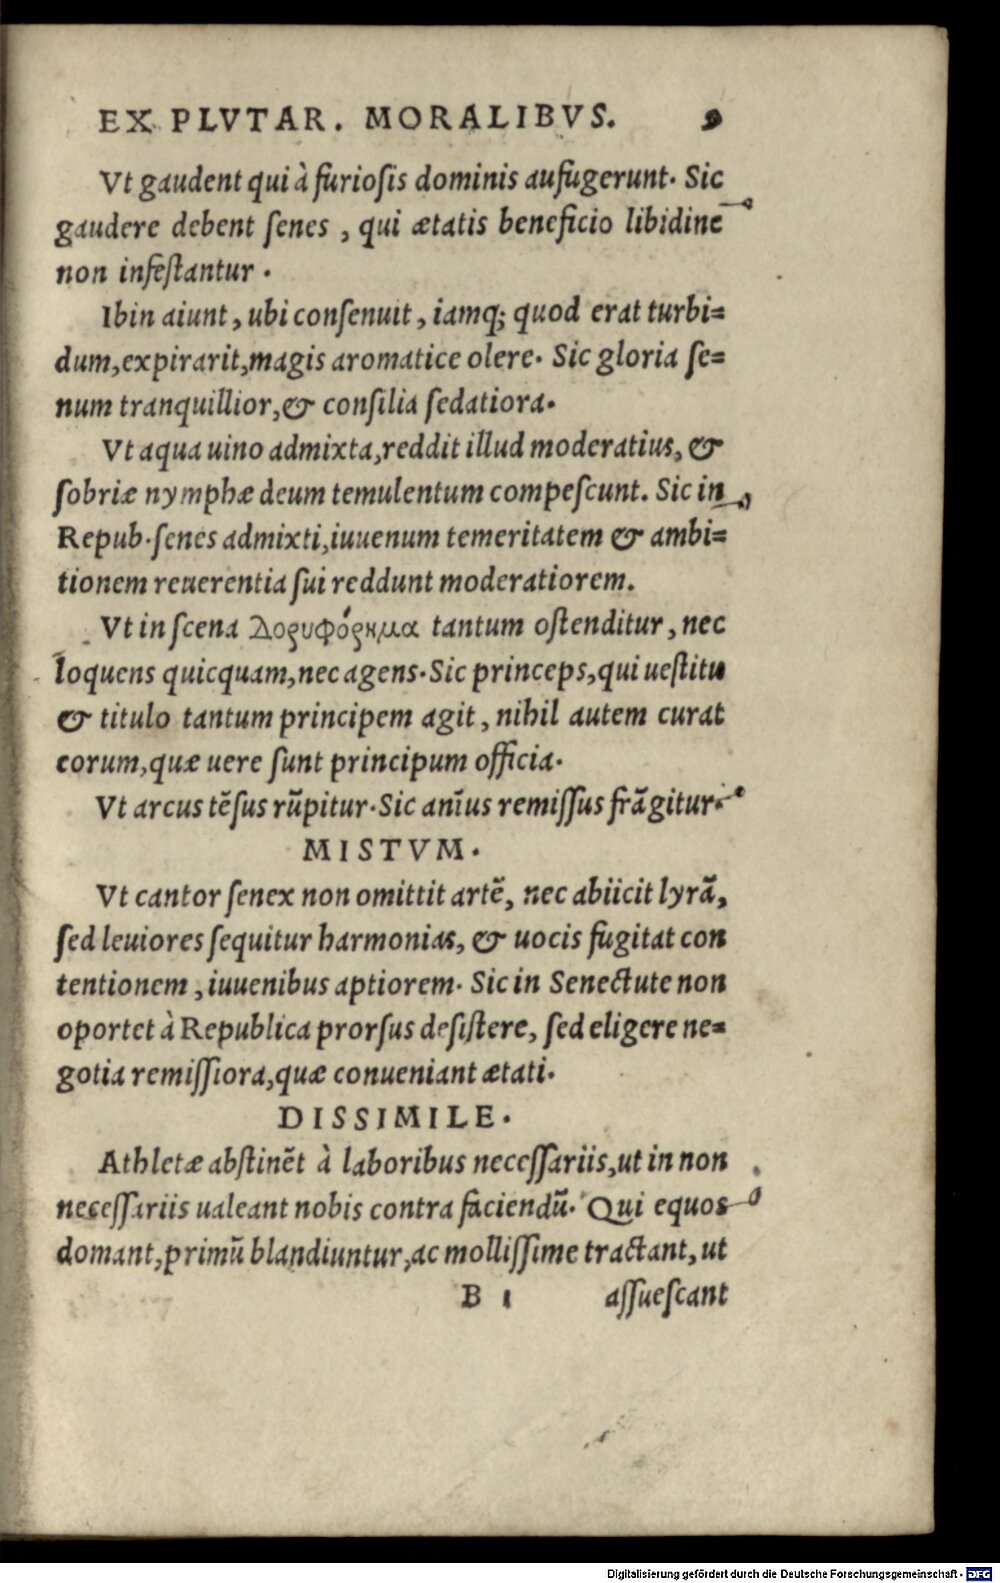 EX PLVTAR. MORALIBVS. 9
Vt gaudent qui à furiosis dominis aufugerunt. Sic
gaudere debent senes, qui ætatis beneficio libidine
non infestantur.
Ibin aiunt, ubi consenuit, iamq; quod erat turbi=
dum, expirarit, magis aromatice olere. Sic gloria se=
num tranquillior, & consilia sedatiora.
Vt aqua uino admixta, reddit illud moderatius, &
sobriæ nymphæ deum temulentum compescunt. Sic in
Repub. senes admixti, iuuenum temeritatem & ambi=
tionem reuerentia sui reddunt moderatiorem.
Vt in scena Δορυφόρημα tantum ostenditur, nec
loquens quicquam, nec agens. Sic princeps, qui uestitu
& titulo tantum principem agit, nihil autem curat
eorum, quæ uere sunt principum officia.
Vt arcus tẽsus rũpitur. Sic anĩus remissus frãgitur.
MISTVM.
Vt cantor senex non omittit artẽ, nec abiicit lyrã,
sed leuiores sequitur harmonias, & uocis fugitat con
tentionem, iuuenibus aptiorem. Sic in Senectute non
oportet à Republica prorsus desistere, sed eligere ne=
gotia remissiora, quæ conueniant ætati.
DISSIMILE.
Athletæ abstinẽt à laboribus necessariis, ut in non
necessariis ualeant nobis contra faciendũ. Qui equos
domant, primũ blandiuntur, ac mollissime tractant, ut
B 1 assuescant
Digitalisierung gefördert durch die Deutsche Forschungsgemeinschaft - DFG